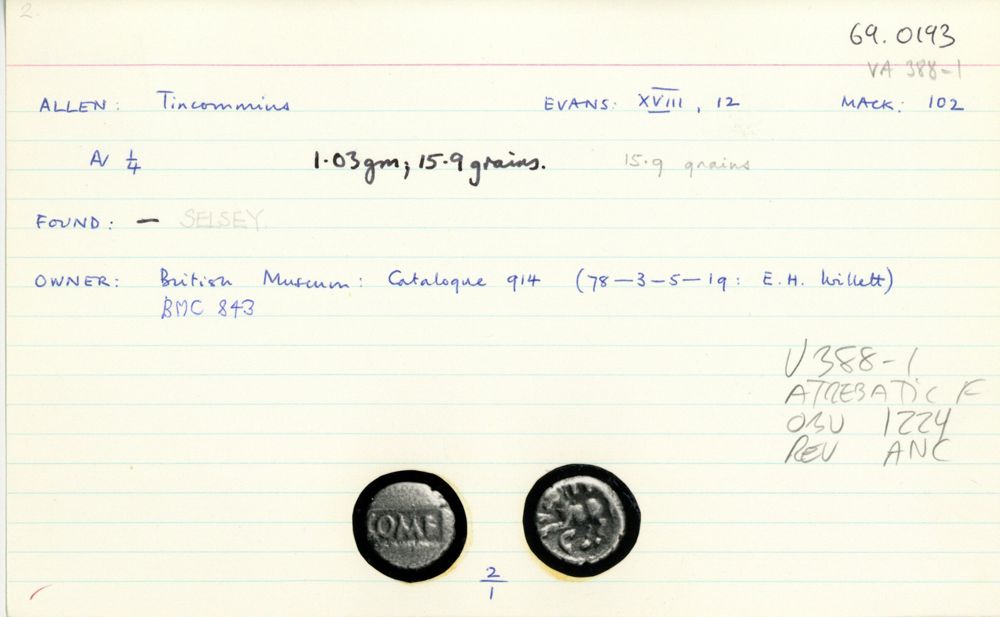 2.
69.0193
VA 388-1
ALLEN: Tincommius EVANS: XVIII, 12 MACK: 102
AV 1/4 1.03gm; 15.9 grains. 15.9 grains
FOUND: — SELSEY
OWNER: British Museum: Catalogue 914 (78-3-5-19: E.H. Willett)
BMC 843
V 388-1
ATREBATIC F
OBV 1224
REV ANC
COMF
2/1